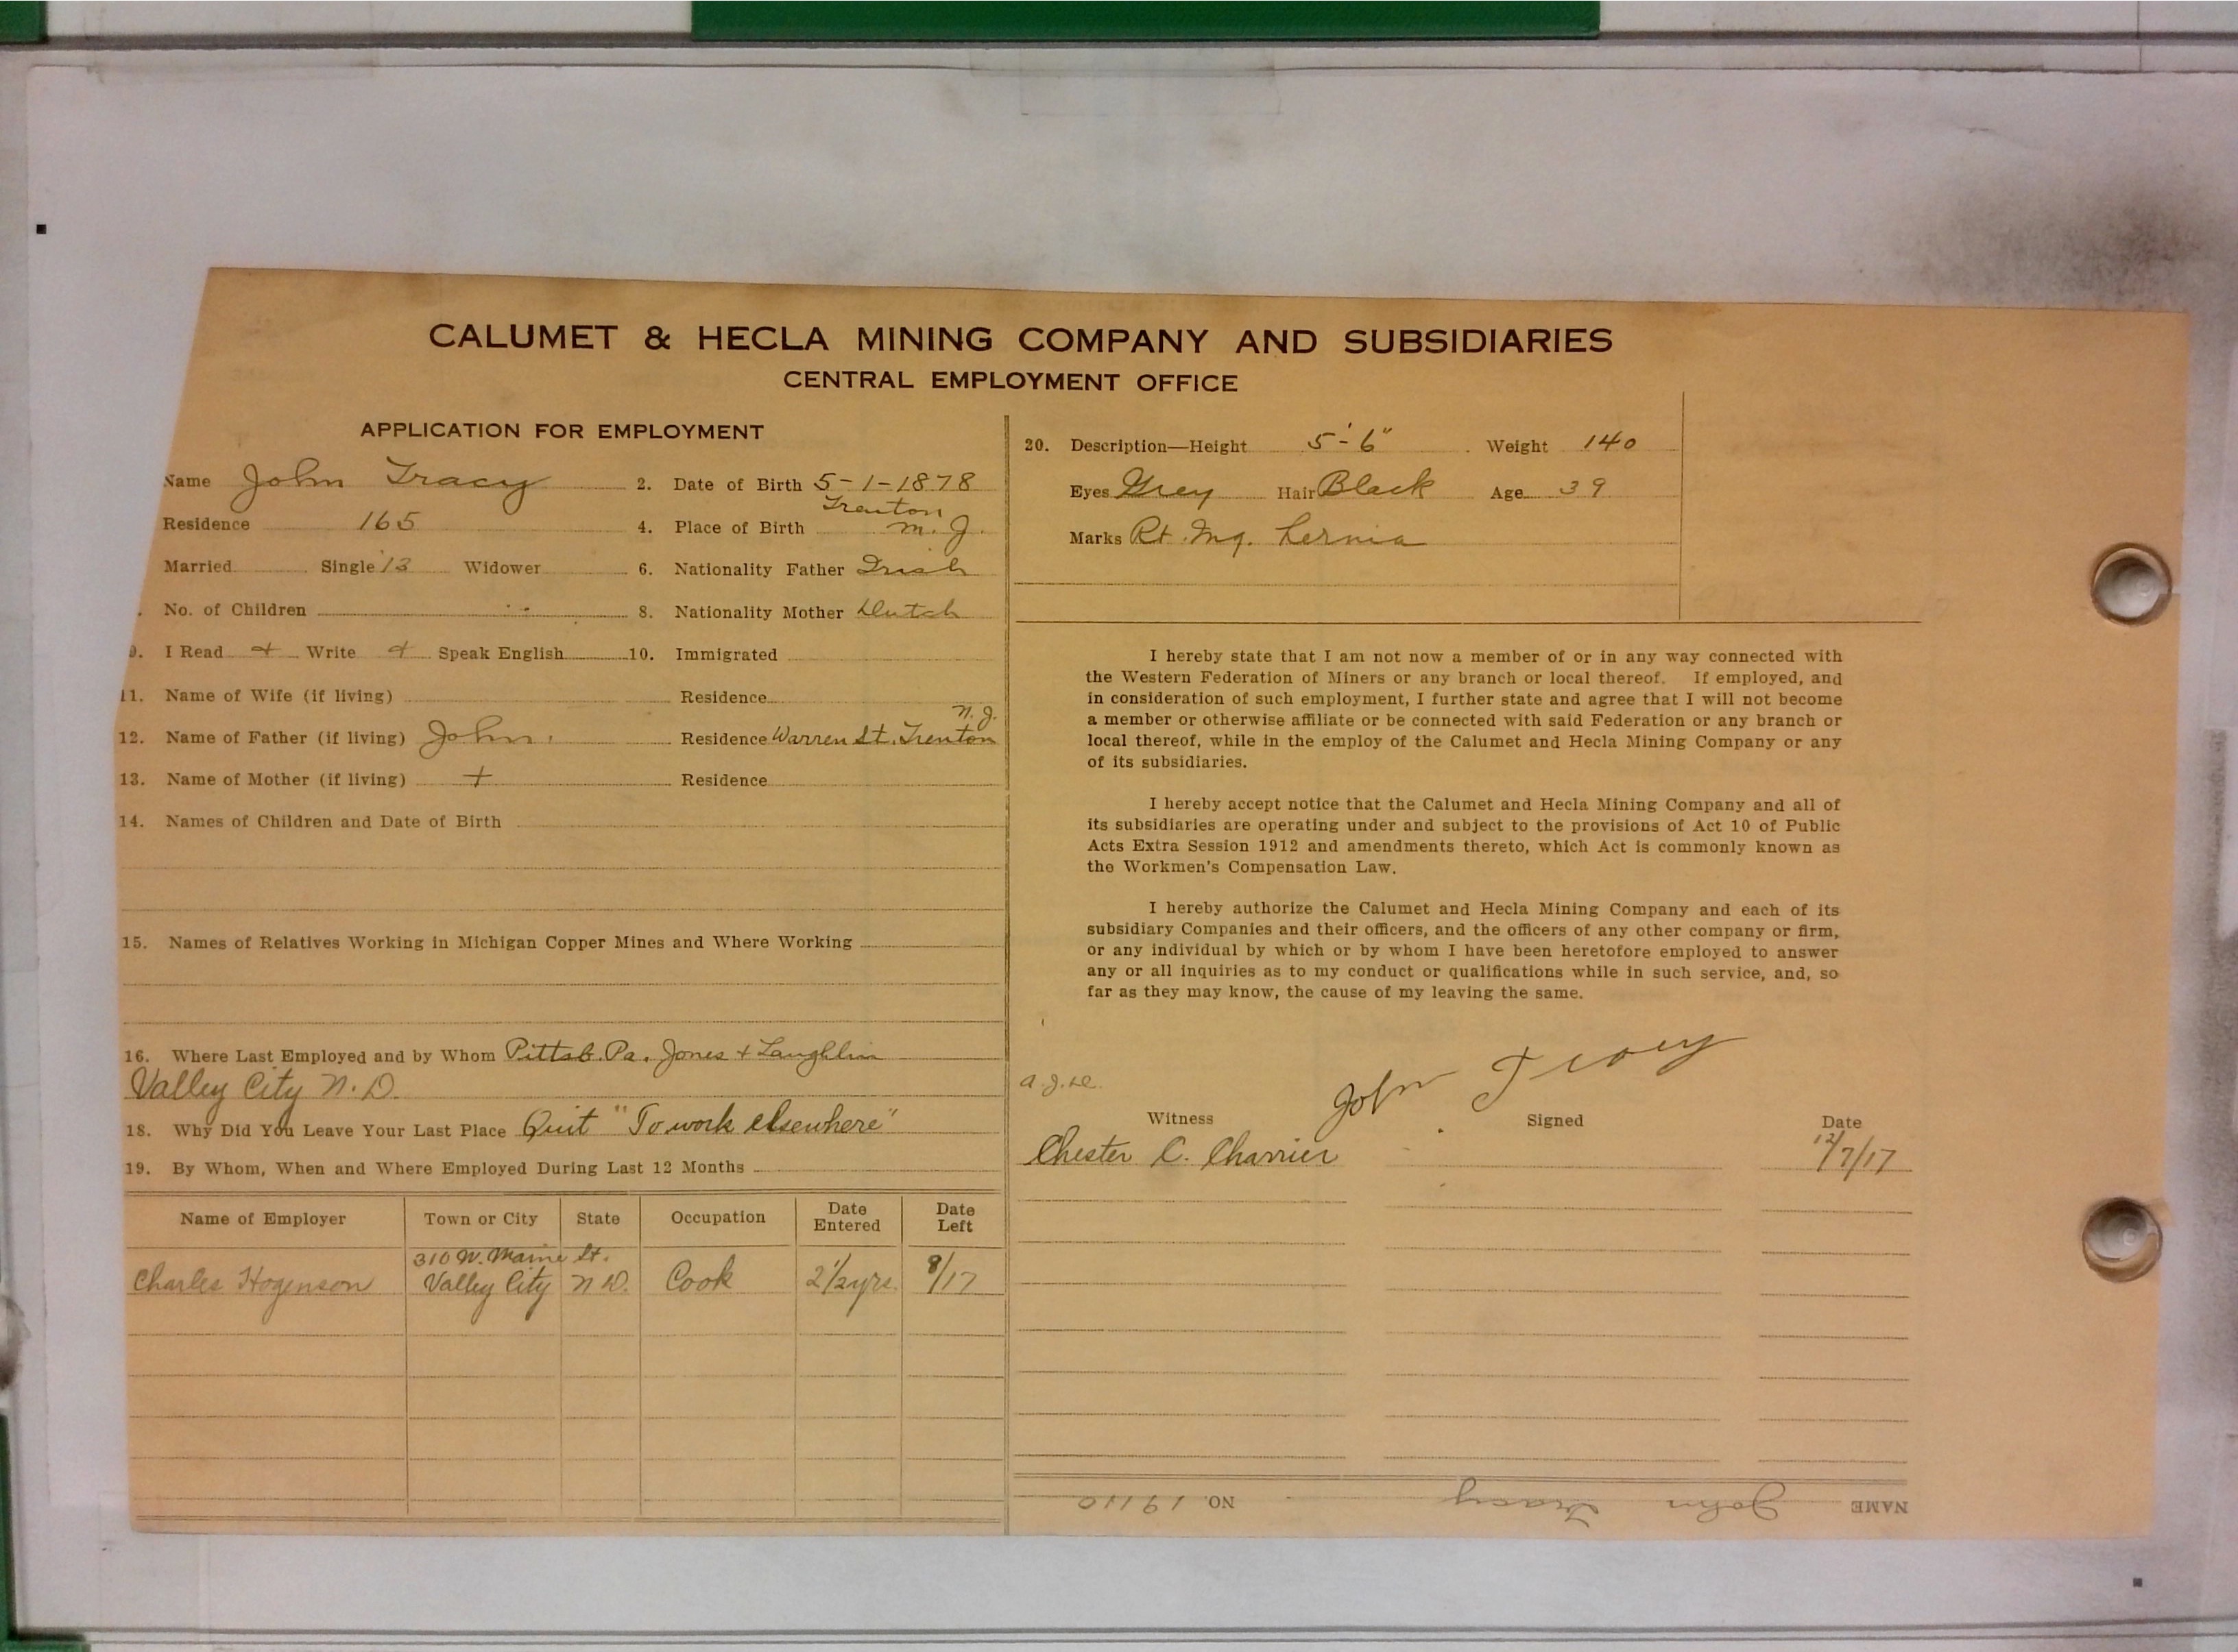 CALUMET & HECLA MINING COMPANY AND SUBSIDIARIES
CENTRAL EMPLOYMENT OFFICE
APPLICATION FOR EMPLOYMENT
Name John Tracy 2. Date of Birth 5-1-1878
Residence 165 4. Place of Birth Trenton N. J.
Married Single 13 Widower 6. Nationality Father Irish
No. of Children 8. Nationality Mother Dutch
9. I Read + Write + Speak English 10. Immigrated
11. Name of Wife (if living) Residence
12. Name of Father (if living) John. Residence Warren St. Trenton N. J.
13. Name of Mother (if living) + Residence
14. Names of Children and Date of Birth
15. Names of Relatives Working in Michigan Copper Mines and Where Working
16. Where Last Employed and by Whom Pittsb. Pa. Jones + Laughlin
Valley City N. D.
18. Why Did You Leave Your Last Place Quit "To work elsewhere"
19. By Whom, When and Where Employed During Last 12 Months
Name of Employer Town or City State Occupation Date Entered Date Left
310 W. Maine St.
Charles Hogenson Valley City N D. Cook 2 1/2 yrs. 8/17
20. Description—Height 5'-6" Weight 140
Eyes Grey Hair Black Age 39
Marks Rt. Ing. Hernia
I hereby state that I am not now a member of or in any way connected with
the Western Federation of Miners or any branch or local thereof. If employed, and
in consideration of such employment, I further state and agree that I will not become
a member or otherwise affiliate or be connected with said Federation or any branch or
local thereof, while in the employ of the Calumet and Hecla Mining Company or any
of its subsidiaries.
I hereby accept notice that the Calumet and Hecla Mining Company and all of
its subsidiaries are operating under and subject to the provisions of Act 10 of Public
Acts Extra Session 1912 and amendments thereto, which Act is commonly known as
the Workmen's Compensation Law.
I hereby authorize the Calumet and Hecla Mining Company and each of its
subsidiary Companies and their officers, and the officers of any other company or firm,
or any individual by which or by whom I have been heretofore employed to answer
any or all inquiries as to my conduct or qualifications while in such service, and, so
far as they may know, the cause of my leaving the same.
John Tracy
Witness Signed Date
Chester C. Charrier 12/7/17
NAME John Tracy NO. 19110